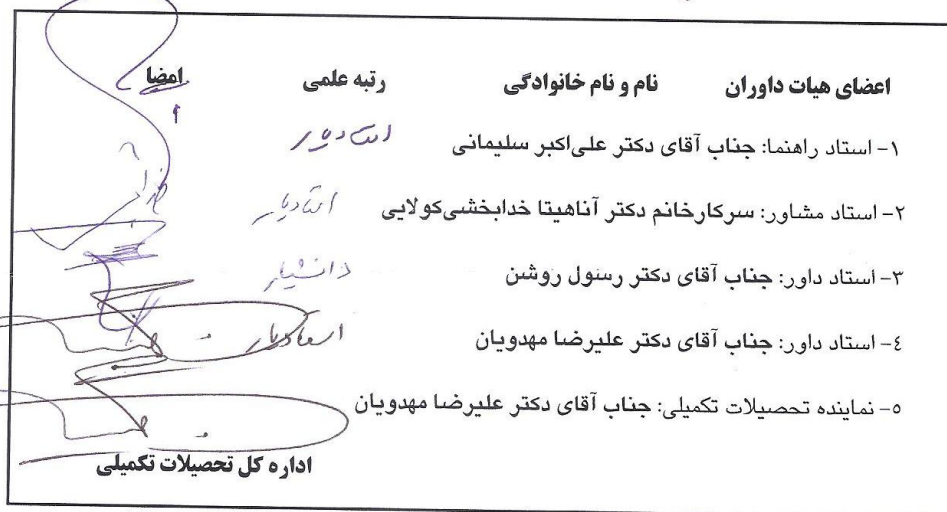 اعضای هیات داوران نام و نام خانوادگی رتبه علمی امضا
۱- استاد راهنما: جناب آقای دکتر علی‌اکبر سلیمانی استادیار
۲- استاد مشاور: سرکارخانم دکتر آناهیتا خدابخشی‌کولایی استادیار
۳- استاد داور: جناب آقای دکتر رسول روشن دانشیار
٤- استاد داور: جناب آقای دکتر علیرضا مهدویان استادیار
٥- نماینده تحصیلات تکمیلی: جناب آقای دکتر علیرضا مهدویان
اداره کل تحصیلات تکمیلی